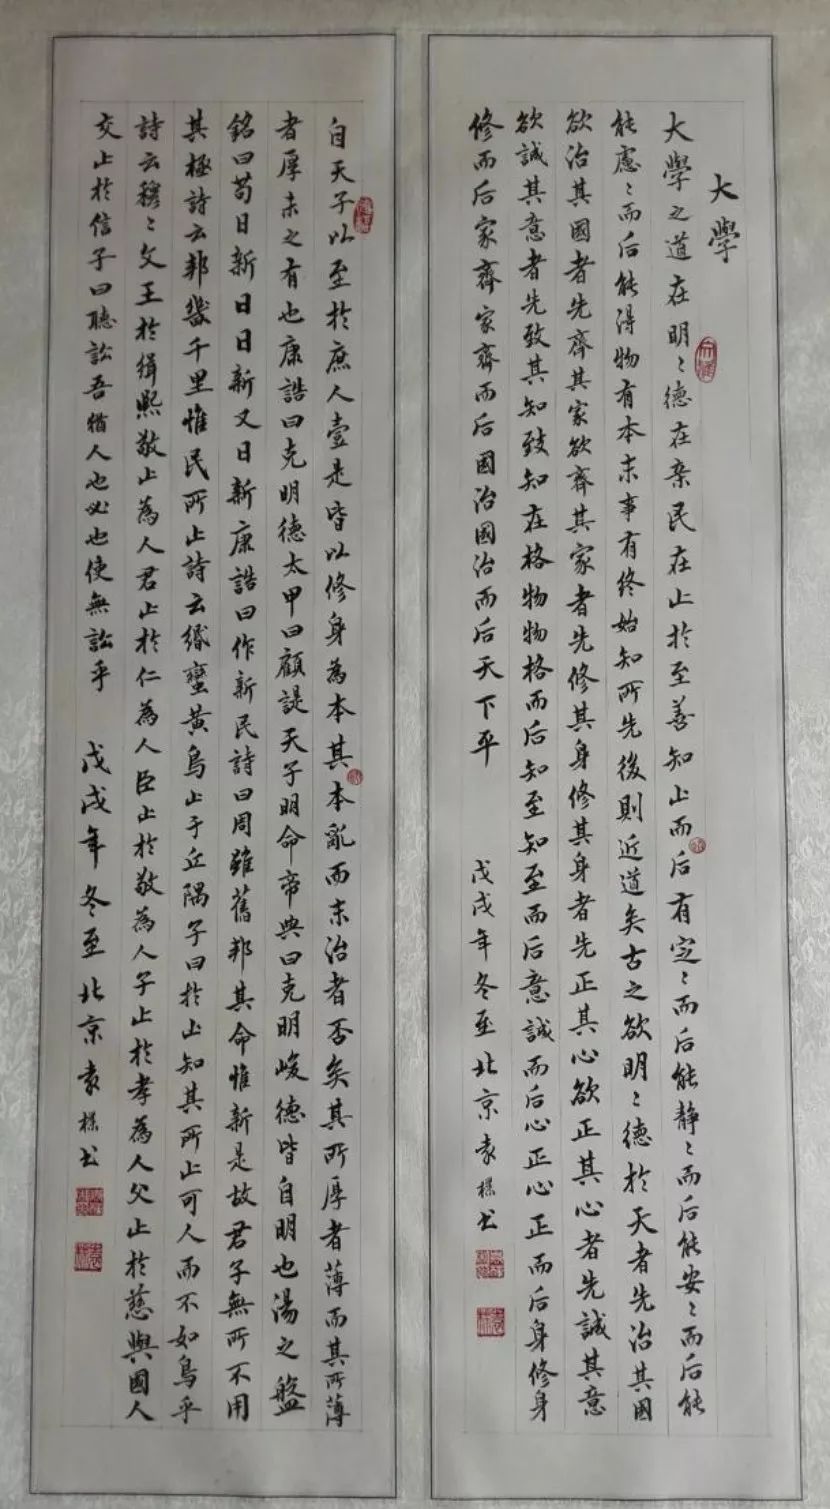 大學
大學之道在明〻德在亲民在止於至善知止而后有定〻而后能静〻而后能安〻而后能
能慮〻而后能得物有本末事有终始知所先後則近道矣古之欲明〻德於天者先治其國
欲治其國者先齊其家欲齊其家者先修其身修其身者先正其心欲正其心者先誠其意
欲誠其意者先致其知致知在格物物格而后知至知至而后意誠而后心正心正而后身修身
修而后家齊家齊而后國治國治而后天下平 戊戌年冬至北京袁书
自天子以至於庶人壹是皆以修身為本其本亂而末治者否矣其所厚者薄而其所薄
者厚未之有也康誥曰克明德太甲曰顧諟天子明命帝典曰克明峻德皆自明也湯之盤
銘曰苟日新日日新又日新康誥曰作新民詩曰周雖舊邦其命惟新是故君子無所不用
其極詩云邦畿千里惟民所止詩云緡蠻黄鳥止于丘隅子曰於止知其所止可人而不如鳥乎
詩云穆〻文王於缉熙敬止為人君止於仁為人臣止於敬為人子止於孝為人父止於慈與國人
交止於信子曰聽訟吾猶人也必也使無訟乎 戊戌年冬至北京袁书